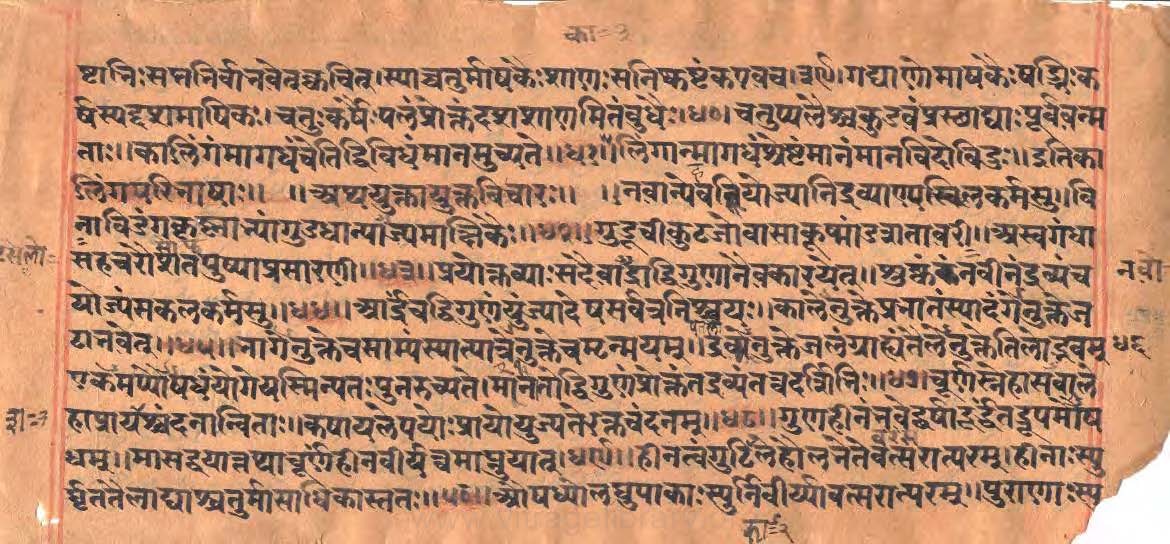 का=३
ष्टानिः सप्तनिर्वानवेतूक्कचित्। स्याच्चतुर्माषकैः शाणः सनिष्कष्टंकएवच।३९। गद्याणो माषकैः षड्भिः क
र्षस्यद्दशमाषिकः। चतुःकर्षैः पलं प्रोक्तं दशशाणमितं बुधैः।४०। चतुष्पलैश्च कुडवं प्रस्थाद्याः पूर्ववन्म
ताः॥ कालिंगं मागधं चेति द्विविधं मानमुच्यते॥४१॥ लिंगान्मागधं श्रेष्टं मानं मानविदोविदुः॥ इतिका
लिंगपरिभाषाः॥ ॥अथयुक्तायुक्तविचारः॥ ॥नवान्येवहियोज्यानि द्रव्याण्यखिलकर्मसु॥ वि
ना विडंगकृष्णाभ्यां गुडधान्याज्यमाक्षिकैः॥४२॥ गुडूचीकुटजोवासाकूष्मांडशतावरी॥ अस्वगंधा
सहचरोशतपुष्पाप्रसारणी॥४३॥ प्रयोक्तव्याः सदैवार्द्राद्विगुणानैवकारयेत्॥ शुष्कंनवीनंद्रव्यंच
योज्यंसकलकर्मसु॥४४॥ आर्द्रंचद्विगुणंयुंज्यादेषसर्वत्रनिश्चयः॥ कालेनुक्तेप्रभातंस्यादंगेनुक्तेज
टाभवेत्॥४५॥ भागेनुक्तेचसाम्यंस्यात्पात्रेनुक्तेचमृन्मयम्॥ द्रवेनुक्तेजलंग्राह्यंतैलेनुक्तेतिलोद्भवम् ४६
एकमप्यौषधंयोगेयस्मिन्यतः पुनरुच्यते। मानतोद्विगुणंप्रोक्तंतद्द्रव्यंतत्त्वदर्शिभिः॥४७॥ चूर्णस्नेहासवाले
हाप्रायश्चंदनान्विताः॥ कषायलेपयोः प्रायोयुज्यतेरक्तचंदनम्॥४८॥ गुणहीनंभवेद्वर्षादूर्द्ध्वंतद्रूपमौष
धम्॥ मासद्वयात्तथाचूर्णंहीनवीर्यत्वमाप्नुयात्।४९॥ हीनत्वंगुटिलेहौलभेतेवत्सरात्परम्। हीनाः स्यु
र्घृततैलाद्याश्चतुर्मासाधिकास्ततः॥५०॥ ओषध्योलघुपाकाः स्युर्निर्वीर्य्यावत्सरात्परम्॥ पुराणाः स्यु